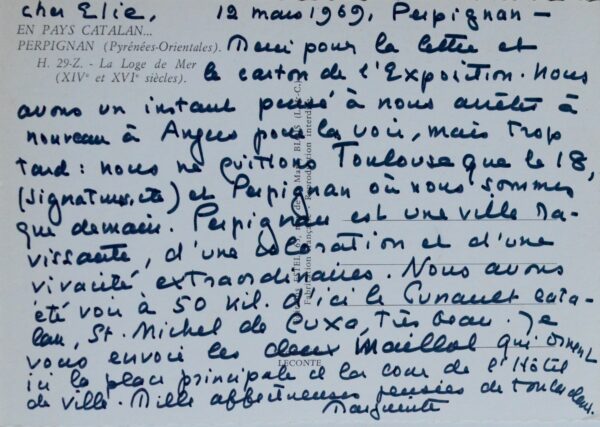 cher Elie, 12 mars 1969, Perpignan —
EN PAYS CATALAN...
PERPIGNAN (Pyrénées-Orientales).
H. 29-Z. - La Loge de Mer
(XIVᵉ et XVIᵉ siècles).
Merci pour la lettre et
le carton de l'Exposition. Nous
avons un instant pensé à nous arrêter à
nouveau à Angers pour la voir, mais trop
tard : nous ne quittons Toulouse que le 18,
(signatures, etc) et Perpignan où nous sommes
que demain. Perpignan est une ville ra-
vissante, d'une coloration et d'une
vivacité extraordinaires. Nous avons
été voir à 50 kil. d'ici le Cunault cata-
lan, St. Michel de Cuxa, très beau. Je
vous envoie les deux Maillol qui ornent
ici la place principale et la cour de l'Hôtel
de ville. Mille affectueuses pensées de toutes deux.
Marguerite
Reproduction interdite
LECONTE